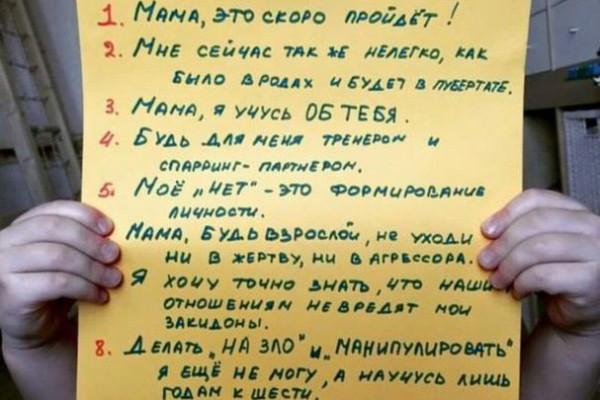 1. МАМА, ЭТО СКОРО ПРОЙДЁТ!
2. МНЕ СЕЙЧАС ТАК ЖЕ НЕЛЕГКО, КАК
БЫЛО В РОДАХ И БУДЕТ В ПУБЕРТАТЕ.
3. МАМА, Я УЧУСЬ ОБ ТЕБЯ.
4. БУДЬ ДЛЯ МЕНЯ ТРЕНЕРОМ И
СПАРРИНГ-ПАРТНЕРОМ.
5. МОЁ „НЕТ" - ЭТО ФОРМИРОВАНИЕ
ЛИЧНОСТИ.
МАМА, БУДЬ ВЗРОСЛОЙ, НЕ УХОДИ
НИ В ЖЕРТВУ, НИ В АГРЕССОРА.
Я ХОЧУ ТОЧНО ЗНАТЬ, ЧТО НАШИМ
ОТНОШЕНИЯМ НЕ ВРЕДЯТ МОИ
ЗАКИДОНЫ.
8. ДЕЛАТЬ „НА ЗЛО" И „МАНИПУЛИРОВАТЬ"
Я ЕЩЁ НЕ МОГУ, А НАУЧУСЬ ЛИШЬ
ГОДАМ К ШЕСТИ.